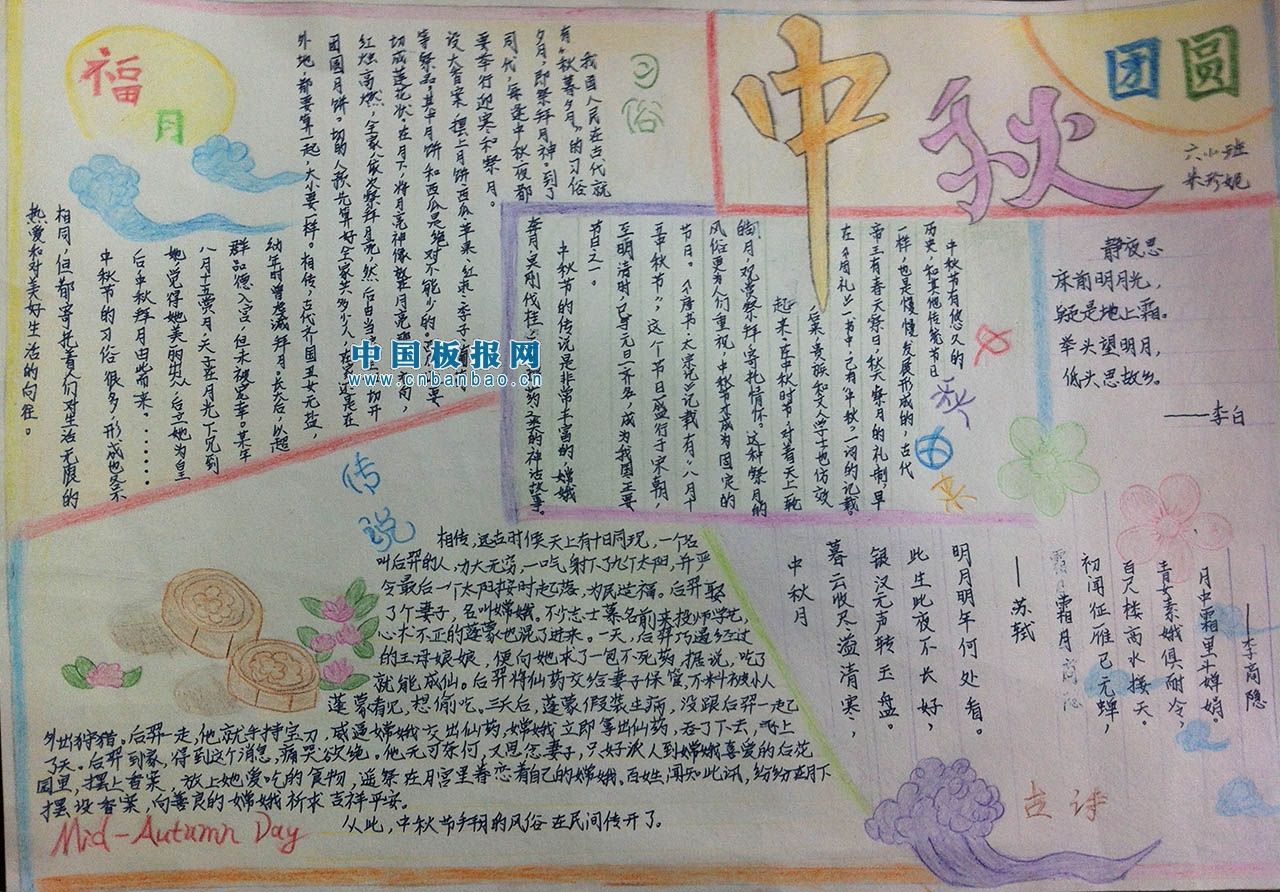 中秋
团圆
六小班
朱珍妮
福
月
习俗
我国人民在古代就
有“秋暮夕月”的习俗
夕月,即祭拜月神。到了
同代,每逢中秋夜都
要举行迎寒和祭月。
设大香案,摆上月饼、西瓜、苹果、红枣、李子
等祭品,其中月饼和西瓜是绝对不能少的。
切成莲花状。在月下,将月亮神像放在月亮
红烛高燃,全家人依次祭拜月亮,然后由当
团圆月饼。切的人预先算好全家共多少人,在家在
外地,都要算一起,大小要一样。相传,古代齐国丑女无盐,
幼年时曾虔诚拜月。长大后,以超
群品德入宫,但未被宠幸。某年
八月十五赏月,天子在月光下见到
她,觉得她美丽出众,后立她为皇
后,中秋拜月由此而来。......
中秋节的习俗很多,形成也各不
相同,但都寄托着人们对生活无限的
热爱和对美好生活的向往。
中秋由来
中秋节有悠久的
历史,和其他传统节日
一样,也是慢慢发展形成的,古代
帝王有春天祭日,秋天祭月的礼制,早
在《周礼》一书中,已有“中秋”一词的记载。
后来贵族和文人学士也仿效
起来,在中秋时节,对着天上一轮
皓月,观赏祭拜,寄托情怀。这种祭月的
风俗更为人们重视,中秋节才成为固定的
节日。《唐书·太宗记》记载有“八月十
五中秋节”,这个节日盛行于宋朝,
至明清时,已与元旦齐名,成为我国主要
节日之一。
中秋节的传说是非常丰富的,嫦娥
奔月,吴刚伐桂,
药之类的神话故事。
中国板报网
www.cnbanbao.cn
静夜思
床前明月光,
疑是地上霜。
举头望明月,
低头思故乡。
——李白
传说
相传,远古时候天上有十日同现,一个名
叫后羿的人,力大无穷,一气射下九个太阳,并严
令最后一个太阳按时起落,为民造福。后羿娶
了个妻子,名叫嫦娥。不少志士慕名前来投师学艺,
心术不正的蓬蒙也混了进来。一天,后羿巧遇经过
的王母娘娘,便向她求了一包不死药。据说,吃了
就能成仙。后羿将仙药交给妻子保管,不料被小人
蓬蒙看见,想偷吃。三天后,蓬蒙假装生病,没跟后羿一起
外出狩猎。后羿一走,他就手持宝刀,威逼嫦娥交出仙药,嫦娥立即拿出仙药,吞了下去,飞上
了天。后羿到家,得到这个消息,痛哭欲绝。他无可奈何,又思念妻子,只好派人到嫦娥喜爱的后花
园里,摆上香案,放上她爱吃的食物,遥祭在月宫里眷恋着自己的嫦娥。百姓闻知此讯,纷纷在月下
摆设香案,向善良的嫦娥祈求吉祥平安。
从此,中秋节拜月的风俗在民间传开了。
Mid-Autumn Day
——李商隐
月中霜里斗婵娟。
青女素娥俱耐冷,
百尺楼高水接天。
初闻征雁已无蝉,
霜月
——苏轼
明月明年何处看。
此生此夜不长好,
银汉无声转玉盘。
暮云收尽溢清寒,
中秋月
古诗